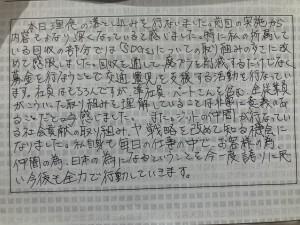 本日理念の落とし込みを行ないました。前回の実施から
内容がかなり深くなっていると感じました。特に私の所属して
いる回収の部分では「SDGs」についての取り組みのすごさに改め
て感服しました。回収を通して廃プラを削減するだけでなく
募金を行なうことで交通遺児を支援する活動を行なっていま
す。社員はもちろんですが、準社員、パートさんを含む、全従業員
がこういった取り組みを理解していることは非常に意義のあ
ることだと今感じました。また、ジットの仲間が行なってい
る社会貢献の取り組み、や戦略を改めて知る機会に
なりました。私自身も毎日の仕事の中で、お客様の為、
仲間の為、日本の為になるということを今一度誇りに思
い今後も全力で行動していきます。